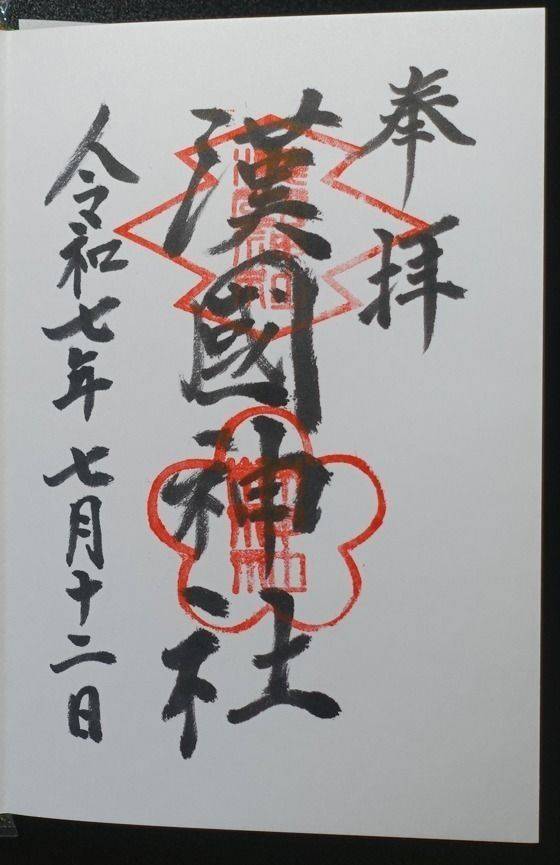 奉拝
漢國神社
令和七年七月十二日